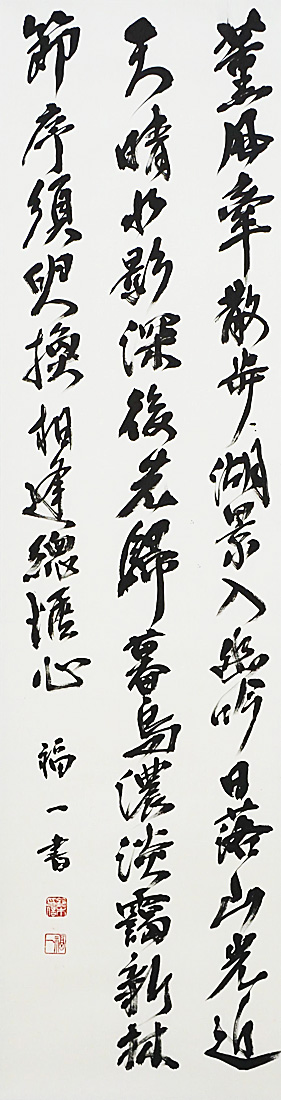 薰風牽散步湖景入幽吟日落山光近
天晴水影深後先歸暮鳥濃淡靄新林
節序須臾換相逢總愜心
福一書